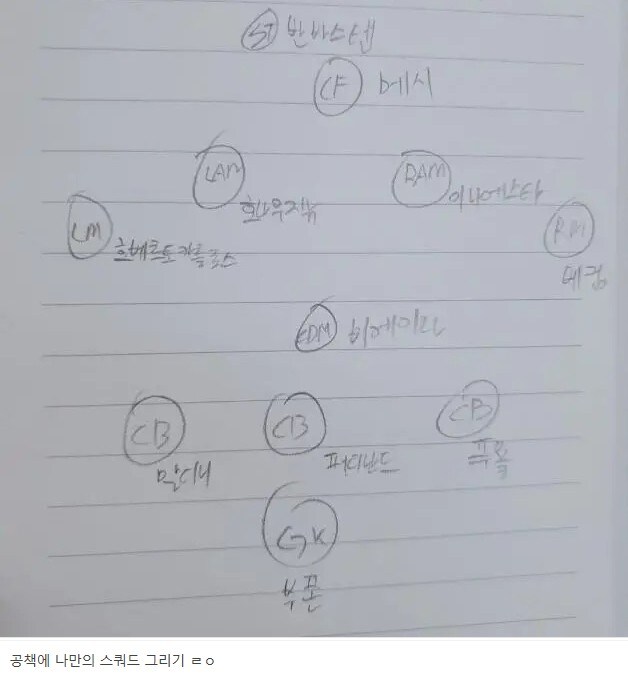 ST 반바스텐
CF 메시
LAM
호나우지뉴
RAM
이니에스타
LM
호베르토카를로스
RM
베컴
CDM 비에이라
CB
말디니
CB
퍼디난드
CB
푸욜
GK
부폰
공책에 나만의 스쿼드 그리기 ㄹㅇ